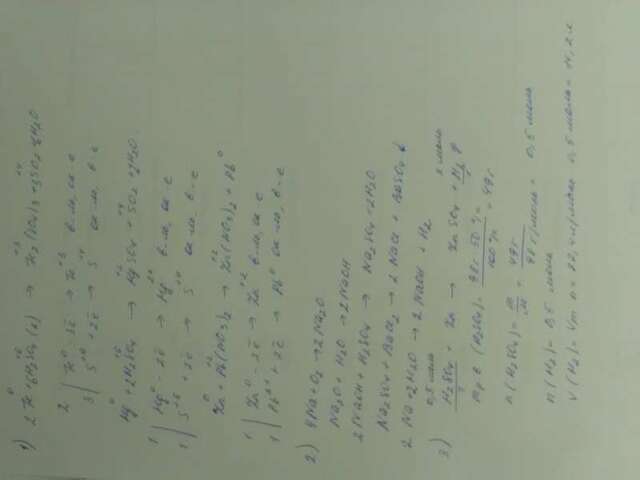 1) 2 Fe + 6H₂SO₄ (к) → Fe₂(SO₄)₃ + 3SO₂ + 6H₂O
2 | Fe⁰ - 3ē → Fe⁺³ в-ль, ок-е
3 | S⁺⁶ + 2ē → S⁺⁴ ок-ль, в-е
Hg + 2H₂SO₄ → HgSO₄ + SO₂ + 2H₂O
1 | Hg⁰ - 2ē → Hg⁺² в-ль, ок-е
1 | S⁺⁶ + 2ē → S⁺⁴ ок-ль, в-е
Zn + Pb(NO₃)₂ → Zn(NO₃)₂ + Pb⁰
1 | Zn⁰ - 2ē → Zn⁺² в-ль, ок-е
1 | Pb⁺² + 2ē → Pb⁰ ок-ль, в-е
2) 4Na + O₂ → 2Na₂O
Na₂O + H₂O → 2NaOH
2NaOH + H₂SO₄ → Na₂SO₄ + 2H₂O
Na₂SO₄ + BaCl₂ → 2NaCl + BaSO₄↓
2 Na + 2H₂O → 2NaOH + H₂
3) H₂SO₄ + Zn → ZnSO₄ + H₂↑
(H₂SO₄) = 98г · 50% / 100% = 49г
n(H₂SO₄) = m / M = 49г / 98 г/моль = 0,5 моль
n(H₂) = 0,5 моль
V(H₂) = Vm · n = 22,4 л/моль · 0,5 моль = 11,2 л